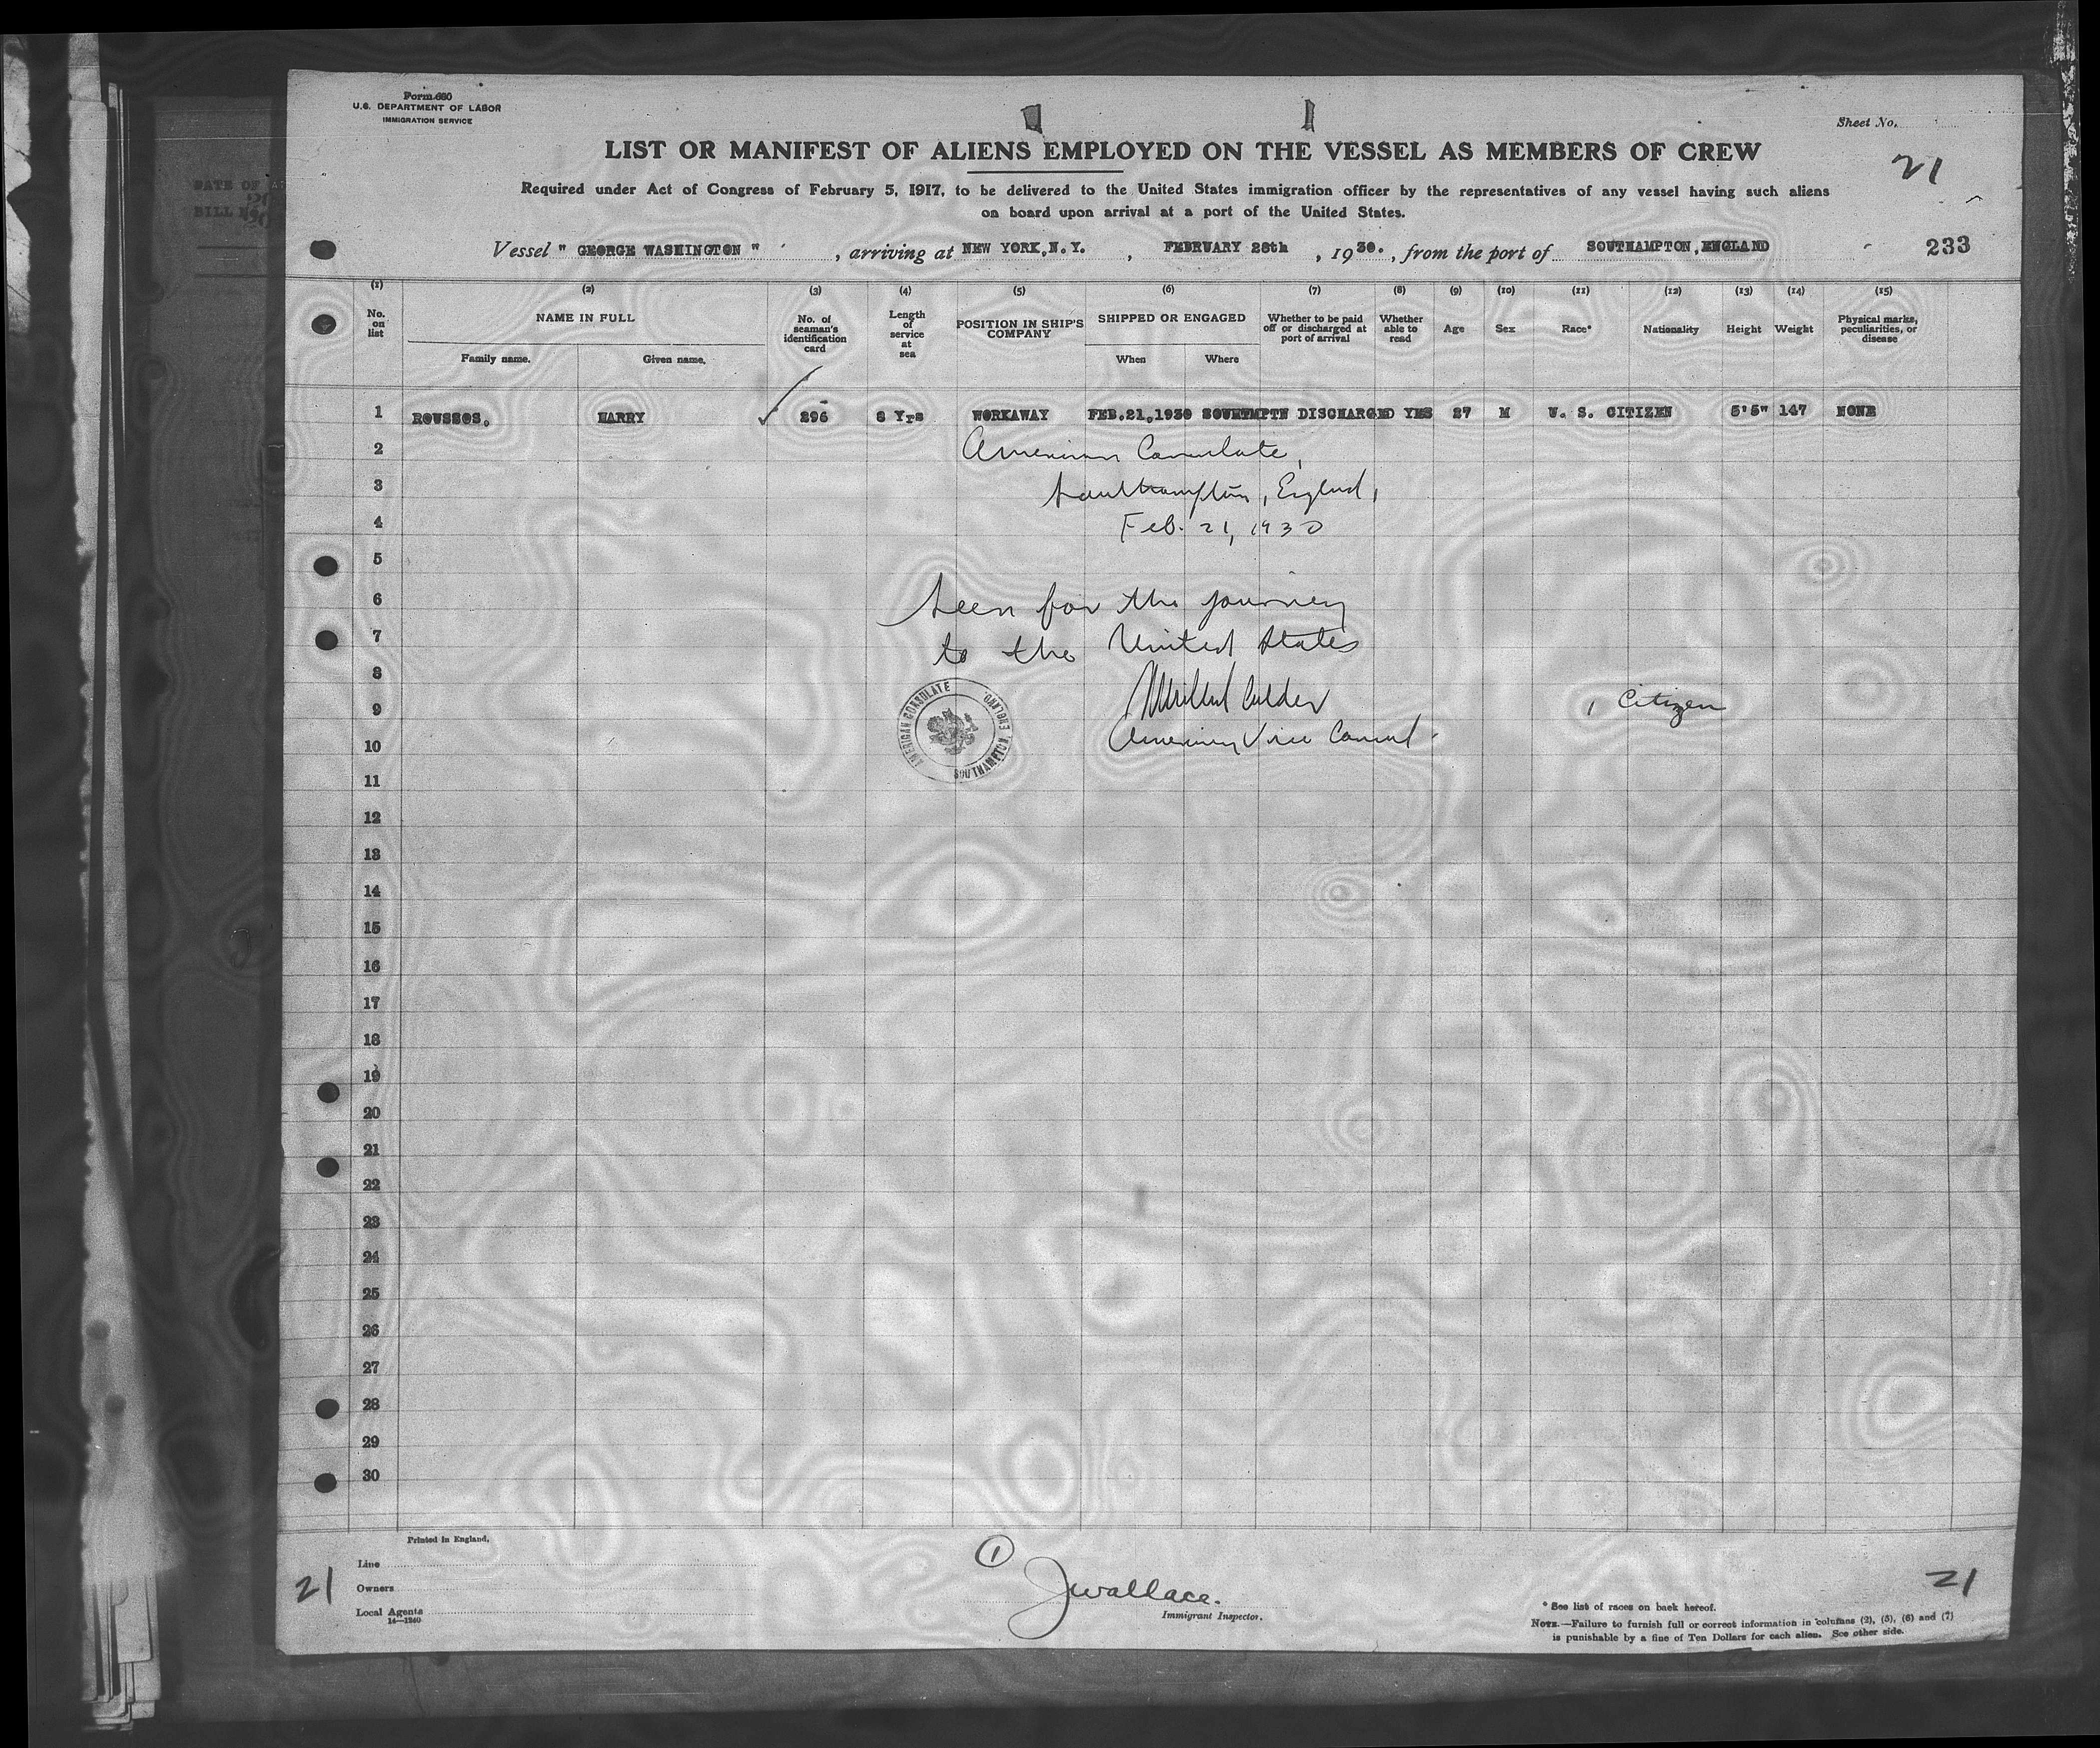 Form 680
U.S. DEPARTMENT OF LABOR
IMMIGRATION SERVICE
Sheet No.
21
LIST OR MANIFEST OF ALIENS EMPLOYED ON THE VESSEL AS MEMBERS OF CREW
Required under Act of Congress of February 5, 1917, to be delivered to the United States immigration officer by the representatives of any vessel having such aliens
on board upon arrival at a port of the United States.
Vessel " GEORGE WASHINGTON " , arriving at NEW YORK, N. Y. , FEBRUARY 28th , 1930. , from the port of SOUTHAMPTON, ENGLAND 233
(1) (2) (3) (4) (5) (6) (7) (8) (9) (10) (11) (12) (13) (14) (15)
No. on list
NAME IN FULL
Family name. Given name.
No. of seaman's identification card
Length of service at sea
POSITION IN SHIP'S COMPANY
SHIPPED OR ENGAGED
When Where
Whether to be paid off or discharged at port of arrival
Whether able to read
Age
Sex
Race*
Nationality
Height
Weight
Physical marks, peculiarities, or disease
1 ROUSSOS, HARRY 296 8 Yrs WORKAWAY FEB.21,1930 SOUTHMPTN DISCHARGED YES 27 M U. S. CITIZEN 5'5" 147 NONE
2 American Consulate,
3 Southampton, England,
4 Feb. 21, 1930
5
6 Seen for the journey
7 to the United States
8
9 Calder 1 Citizen
10 American Vice Consul.
AMERICAN CONSULATE SOUTHAMPTON, ENGLAND.
11
12
13
14
15
16
17
18
19
20
21
22
23
24
25
26
27
28
29
30
Printed in England.
Line
Owners
Local Agents
14—1240
21
1
J Wallace.
Immigrant Inspector.
21
* See list of races on back hereof.
NOTE.—Failure to furnish full or correct information in columns (2), (5), (6) and (7)
is punishable by a fine of Ten Dollars for each alien. See other side.